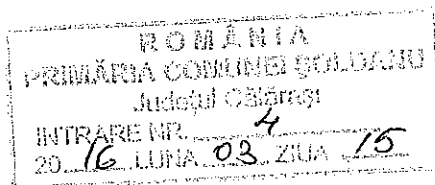 ROMÂNIA
PRIMĂRIA COMUNEI ȘOLDANU
Județul Călărași
INTRARE NR. 4
20 16 LUNA 03 ZIUA 15